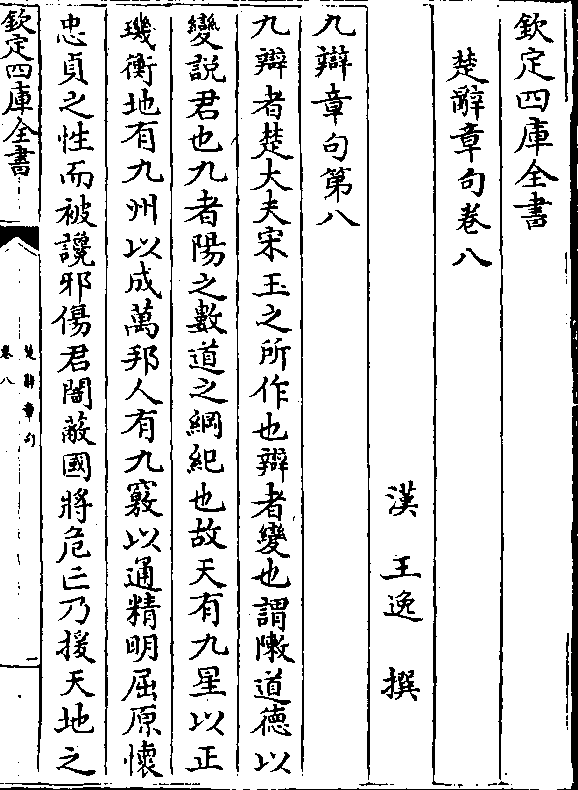 欽定四庫全書
楚辭章句卷八
漢 王逸 撰
九辯章句第八
九辯者楚大夫宋玉之所作也辯者變也謂敶道德以
變説君也九者陽之數道之綱紀也故天有九星以正
璣衡地有九州以成萬邦人有九竅以通精明屈原懷
忠貞之性而被讒邪傷君闇蔽國將危亡乃援天地之
欽定四庫全書
楚辭章句
卷八
一